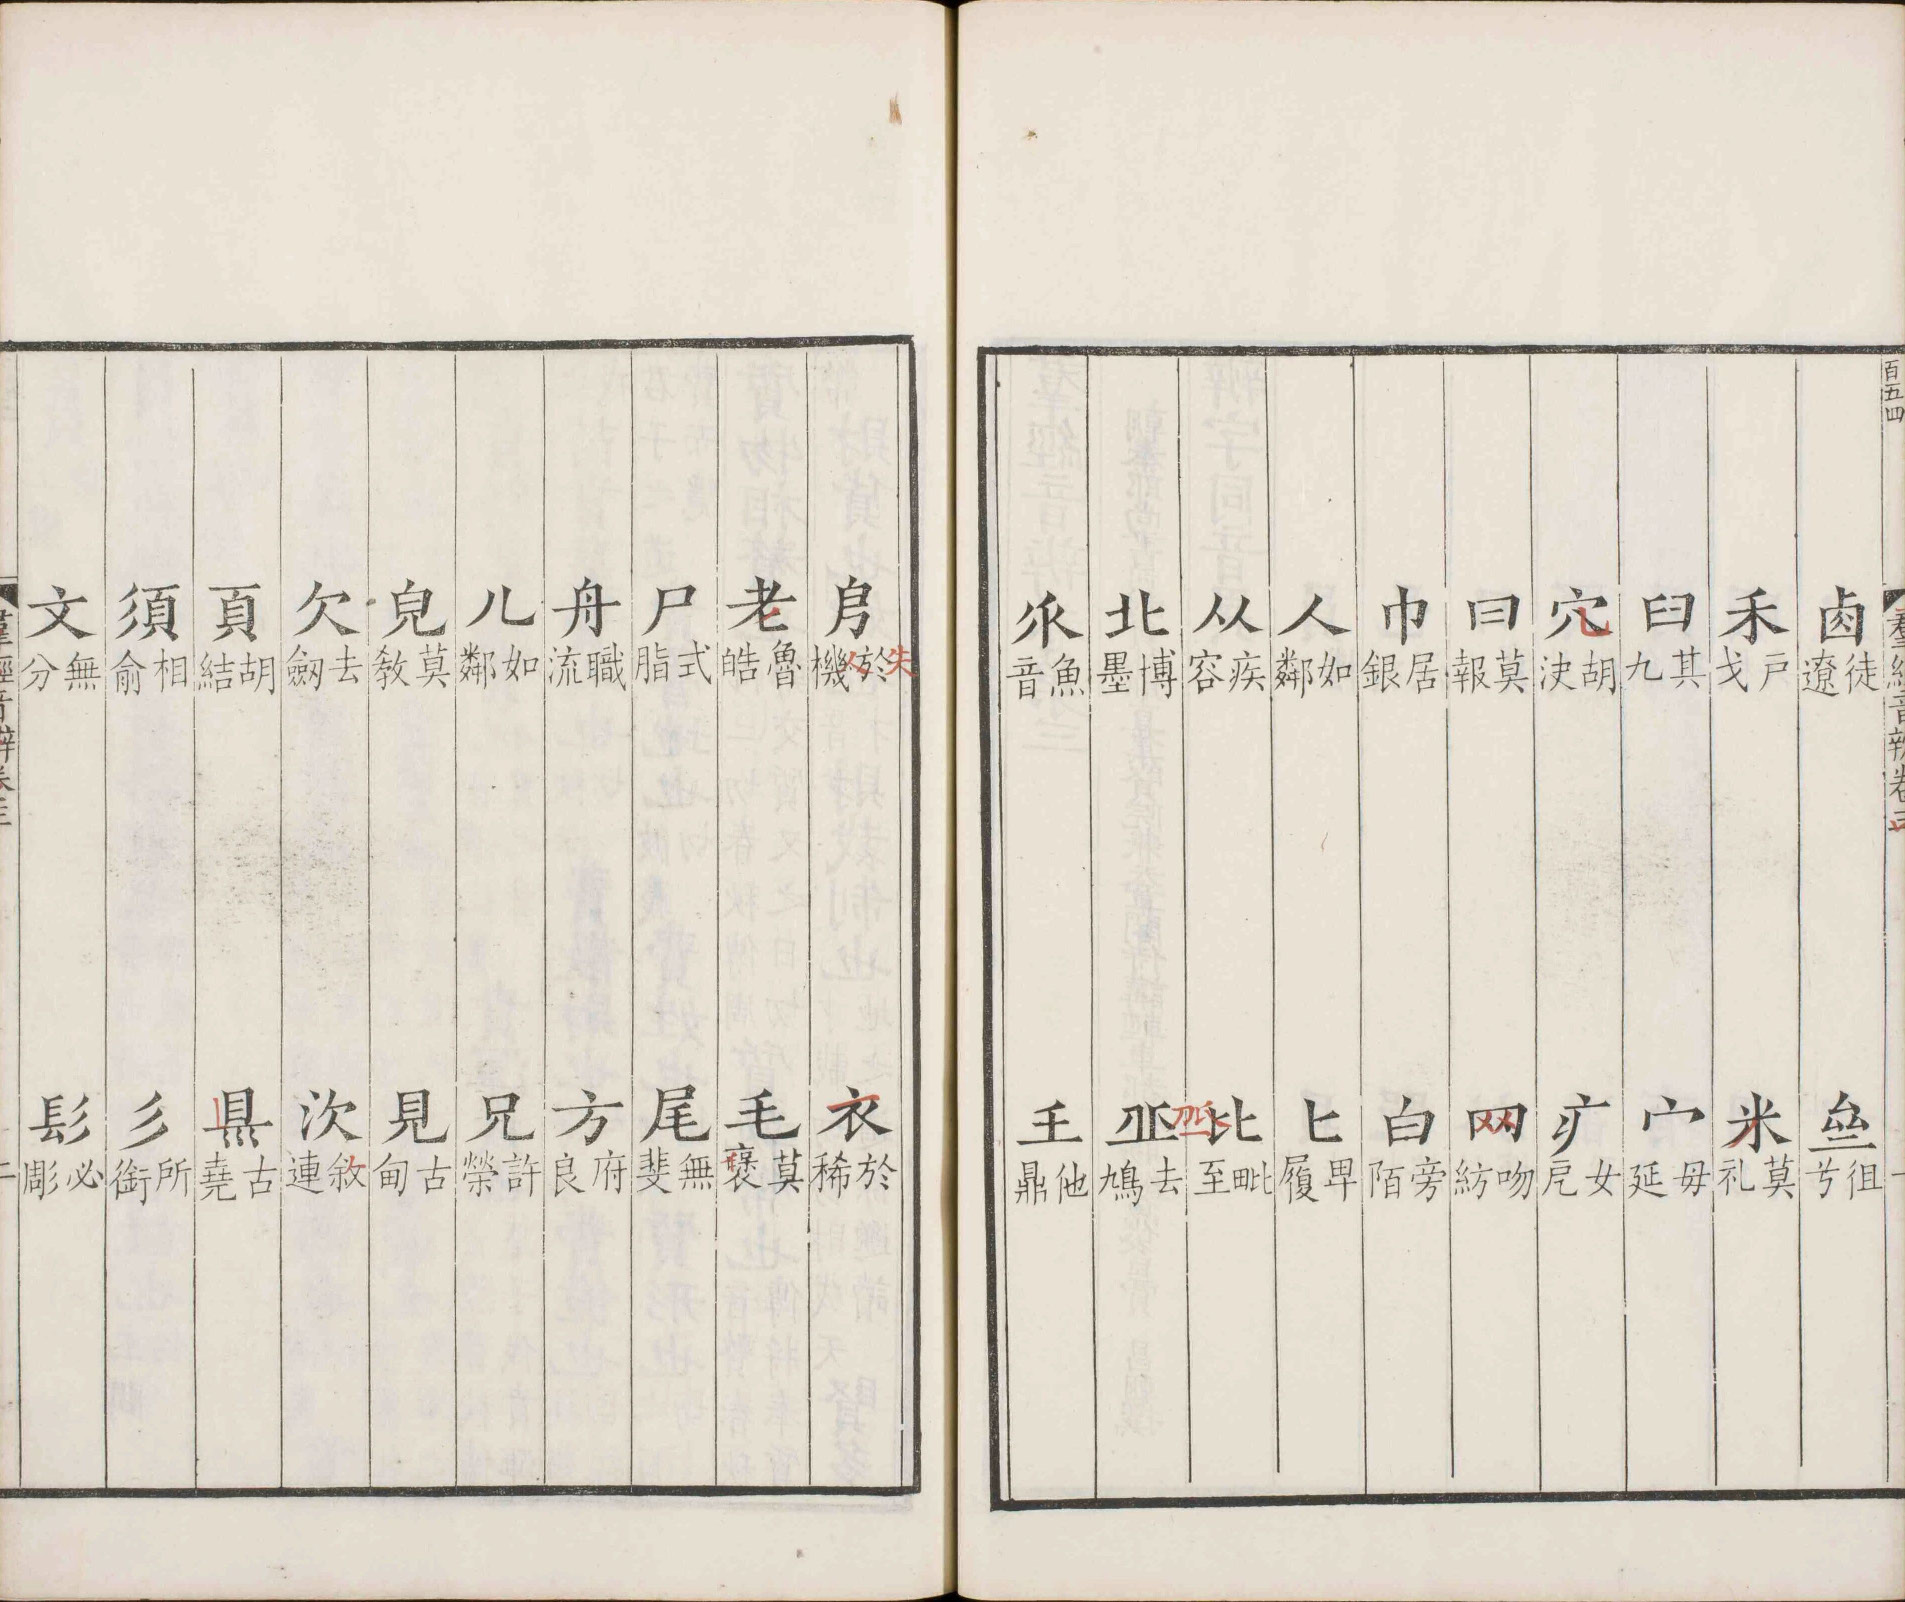 百五四
羣經音辨卷三
一
卤 徒遼 亝 徂兮
禾 戸戈 米 莫礼
臼 其九 宀 毋延
穴 胡決 疒 女戹
冃 莫報 网 吻紡
巾 居銀 白 旁陌
人 如鄰 匕 𤰞履
从 疾容 比 毗至
北 博墨 丠 去鳩
乑 魚音 𡈼 他鼎
㐆 於機 衣 於稀
老 魯皓 毛 莫褒
尸 式脂 尾 無斐
舟 職流 方 府良
儿 如鄰 兄 許榮
皃 莫敎 見 古甸
欠 去劔 㳄 敘連
頁 胡結 𥄉 古堯
須 相俞 彡 所銜
文 無分 髟 必彫
羣經音辨卷三
二